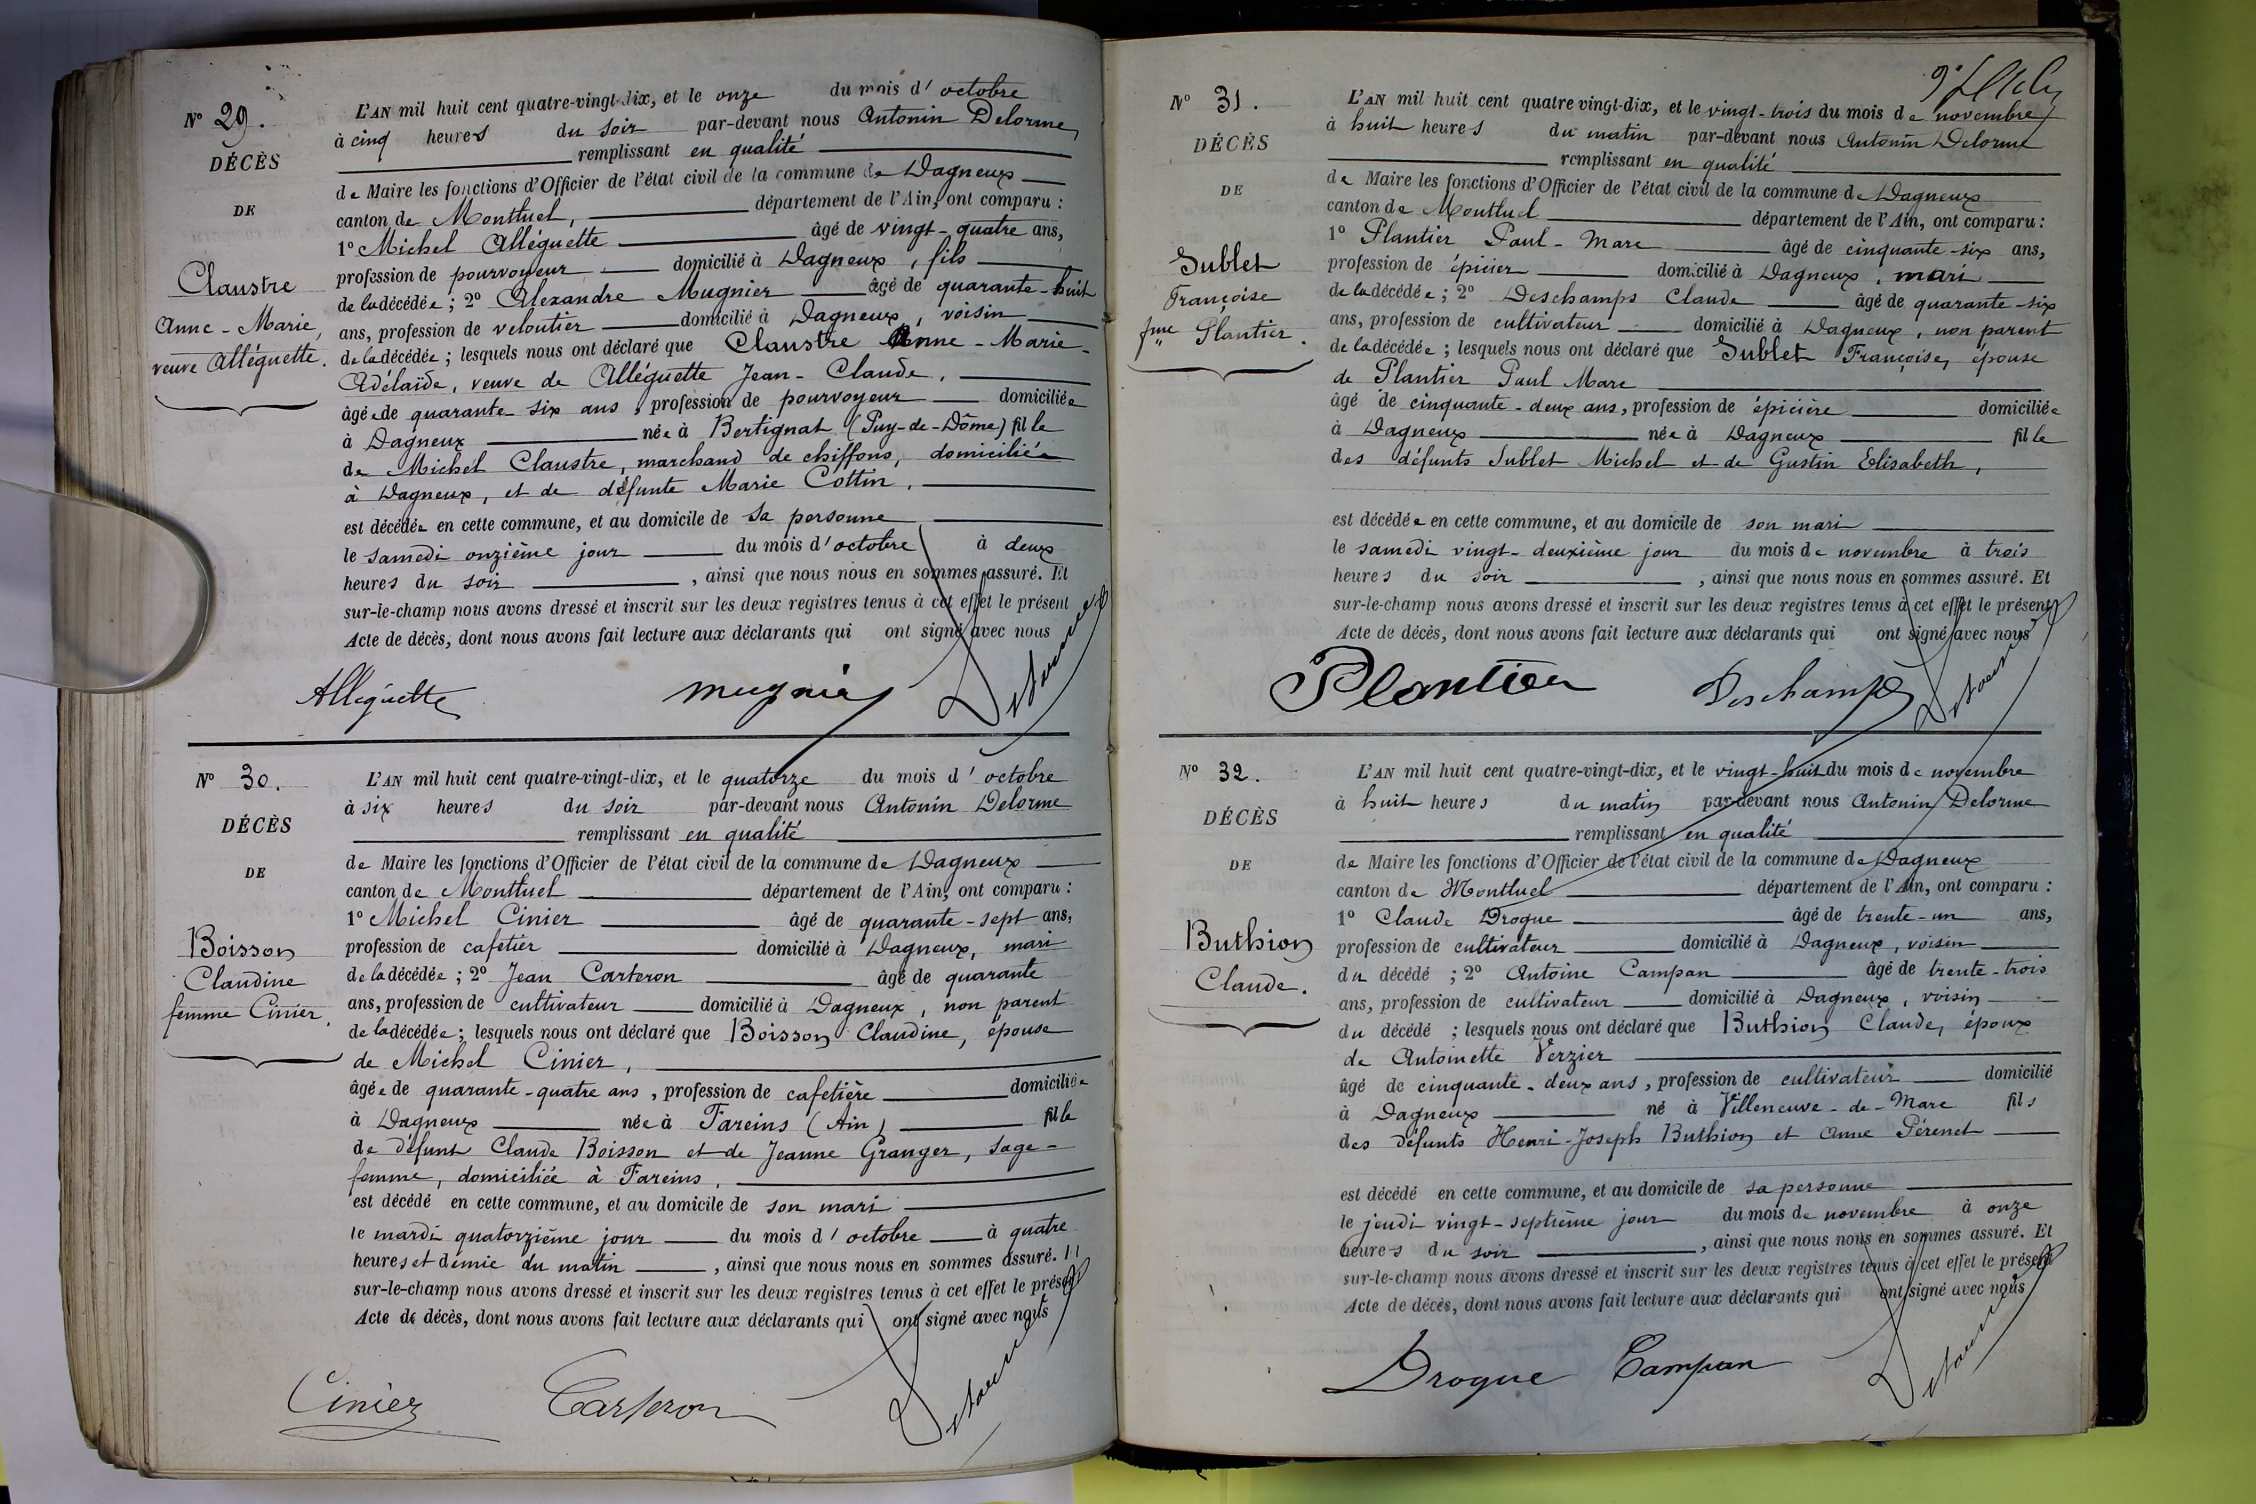 Nº 29.
DÉCÈS
DE
Claustre
Anne-Marie,
veuve Alléguette.
L'AN mil huit cent quatre-vingt-dix, et le onze du mois d'octobre
à cinq heures du soir par-devant nous Antonin Delorme,
remplissant en qualité
de Maire les fonctions d'Officier de l'état civil de la commune de Dagneux
canton de Montluel, département de l'Ain, ont comparu :
1º Michel Alléguette âgé de vingt-quatre ans,
profession de pourvoyeur domicilié à Dagneux, fils
de la décédée ; 2º Alexandre Mugnier âgé de quarante-huit
ans, profession de veloutier domicilié à Dagneux, voisin
de la décédée ; lesquels nous ont déclaré que Claustre Anne-Marie-
Adélaïde, veuve de Alléguette Jean-Claude,
âgée de quarante-six ans, profession de pourvoyeur domiciliée
à Dagneux née à Bertignat (Puy-de-Dôme) fille
de Michel Claustre, marchand de chiffons, domiciliée
à Dagneux, et de défunte Marie Cottin,
est décédée en cette commune, et au domicile de sa personne
le samedi onzième jour du mois d'octobre à deux
heures du soir, ainsi que nous nous en sommes assuré. Et
sur-le-champ nous avons dressé et inscrit sur les deux registres tenus à cet effet le présent
Acte de décès, dont nous avons fait lecture aux déclarants qui ont signé avec nous
Alléguette Mugnier Delorme
Nº 30.
DÉCÈS
DE
Boisson
Claudine
femme Cinier.
L'AN mil huit cent quatre-vingt-dix, et le quatorze du mois d'octobre
à six heures du soir par-devant nous Antonin Delorme
remplissant en qualité
de Maire les fonctions d'Officier de l'état civil de la commune de Dagneux
canton de Montluel département de l'Ain, ont comparu :
1º Michel Cinier âgé de quarante-sept ans,
profession de cafetier domicilié à Dagneux, mari
de la décédée ; 2º Jean Carteron âgé de quarante
ans, profession de cultivateur domicilié à Dagneux, non parent
de la décédée ; lesquels nous ont déclaré que Boisson Claudine, épouse
de Michel Cinier,
âgée de quarante-quatre ans, profession de cafetière domiciliée
à Dagneux née à Fareins (Ain) fille
de défunt Claude Boisson et de Jeanne Granger, sage-
femme, domiciliée à Fareins,
est décédé en cette commune, et au domicile de son mari
le mardi quatorzième jour du mois d'octobre à quatre
heures et demie du matin, ainsi que nous nous en sommes assuré. Et
sur-le-champ nous avons dressé et inscrit sur les deux registres tenus à cet effet le présent
Acte de décès, dont nous avons fait lecture aux déclarants qui ont signé avec nous
Cinier Carteron Delorme
Nº 31.
DÉCÈS
DE
Sublet
Françoise
fme Plantier.
L'AN mil huit cent quatre-vingt-dix, et le vingt-trois du mois de novembre
à huit heures du matin par-devant nous Antonin Delorme
remplissant en qualité
de Maire les fonctions d'Officier de l'état civil de la commune de Dagneux
canton de Montluel département de l'Ain, ont comparu :
1º Plantier Paul-Marc âgé de cinquante-six ans,
profession de épicier domicilié à Dagneux, mari
de la décédée ; 2º Deschamps Claude âgé de quarante-six
ans, profession de cultivateur domicilié à Dagneux, non parent
de la décédée ; lesquels nous ont déclaré que Sublet Françoise, épouse
de Plantier Paul Marc
âgé de cinquante-deux ans, profession de épicière domiciliée
à Dagneux née à Dagneux fille
des défunts Sublet Michel et de Gustin Elisabeth,
est décédée en cette commune, et au domicile de son mari
le samedi vingt-deuxième jour du mois de novembre à trois
heures du soir, ainsi que nous nous en sommes assuré. Et
sur-le-champ nous avons dressé et inscrit sur les deux registres tenus à cet effet le présent
Acte de décès, dont nous avons fait lecture aux déclarants qui ont signé avec nous
Plantier Deschamps Delorme
Nº 32.
DÉCÈS
DE
Buthion
Claude.
L'AN mil huit cent quatre-vingt-dix, et le vingt-huit du mois de novembre
à huit heures du matin par-devant nous Antonin Delorme
remplissant en qualité
de Maire les fonctions d'Officier de l'état civil de la commune de Dagneux
canton de Montluel département de l'Ain, ont comparu :
1º Claude Drogue âgé de trente-un ans,
profession de cultivateur domicilié à Dagneux, voisin
du décédé ; 2º Antoine Campan âgé de trente-trois
ans, profession de cultivateur domicilié à Dagneux, voisin
du décédé ; lesquels nous ont déclaré que Buthion Claude, époux
de Antoinette Verzier
âgé de cinquante-deux ans, profession de cultivateur domicilié
à Dagneux né à Villeneuve-de-Marc fils
des défunts Henri-Joseph Buthion et Anne Pérenet
est décédé en cette commune, et au domicile de sa personne
le jeudi vingt-septième jour du mois de novembre à onze
heures du soir, ainsi que nous nous en sommes assuré. Et
sur-le-champ nous avons dressé et inscrit sur les deux registres tenus à cet effet le présent
Acte de décès, dont nous avons fait lecture aux déclarants qui ont signé avec nous
Drogue Campan Delorme